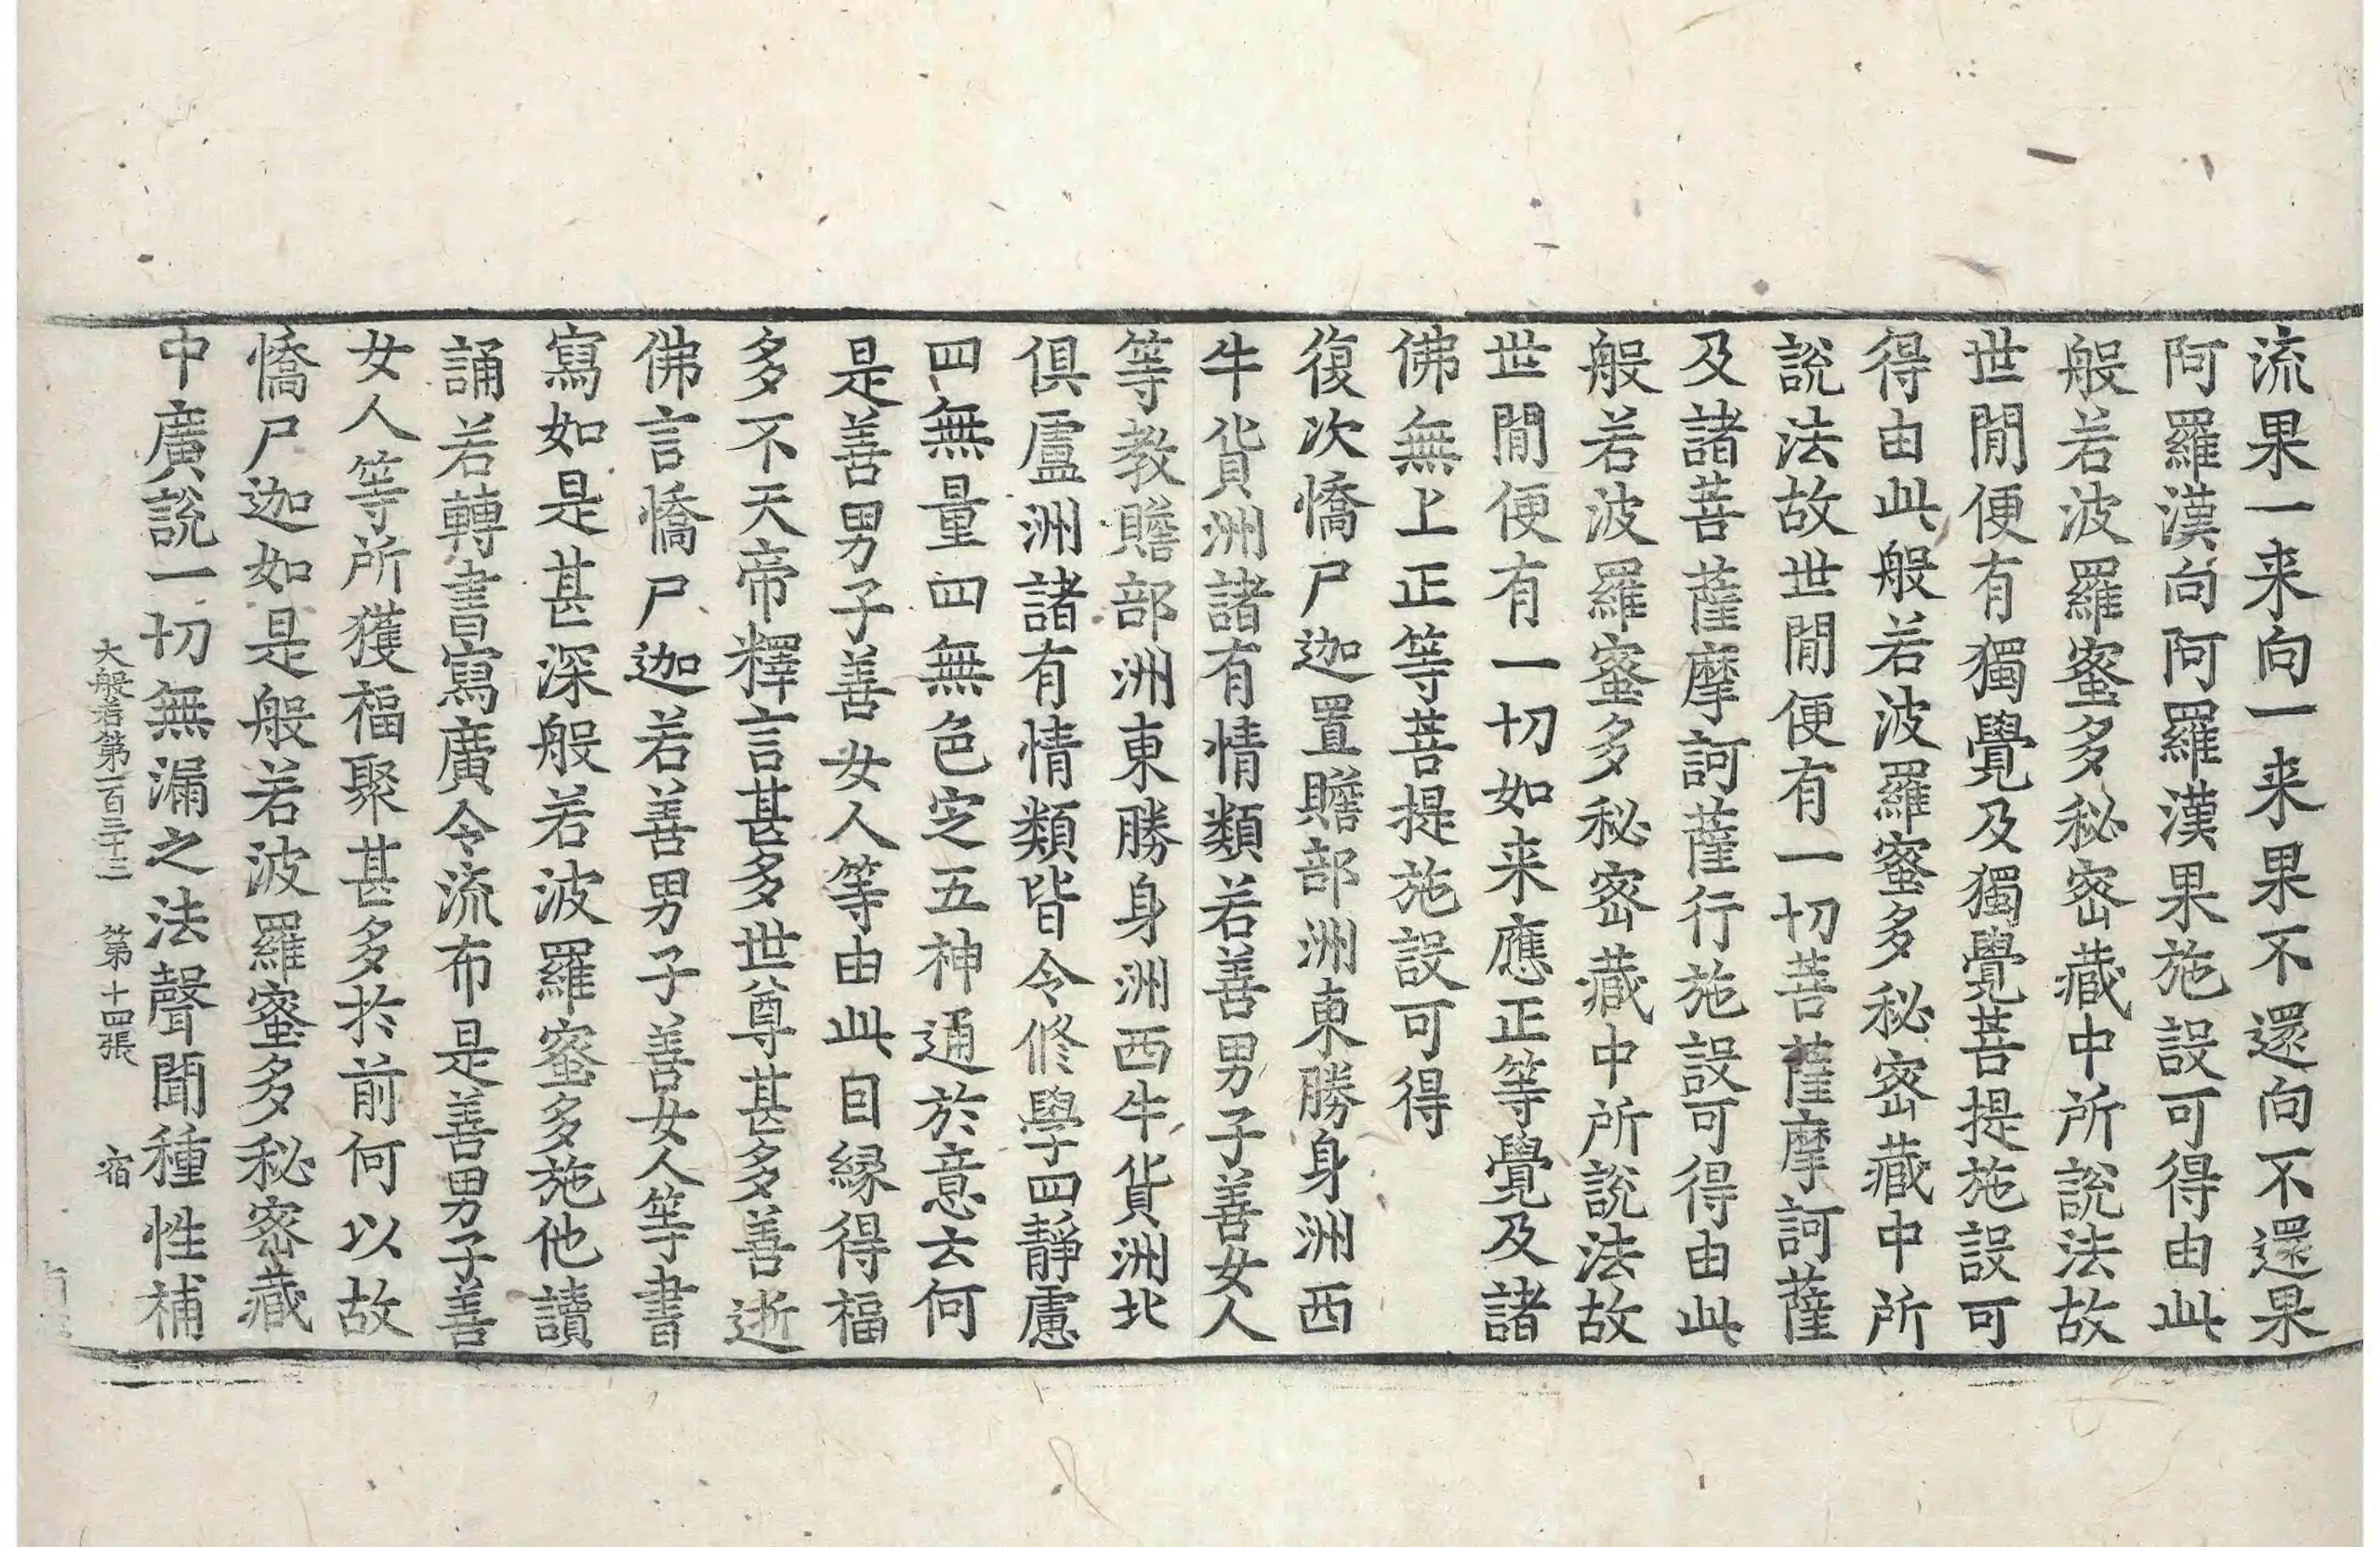 流果一来向一来果不還向不還果
阿羅漢向阿羅漢果施設可得由此
般若波羅蜜多秘密藏中所説法故
世間便有獨覺及獨覺菩提施設可
得由此般若波羅蜜多秘密藏中所
説法故世間便有一切菩薩摩訶薩
及諸菩薩摩訶薩行施設可得由此
般若波羅蜜多秘密藏中所説法故
世間便有一切如来應正等覺及諸
佛無上正等菩提施設可得
復次憍尸迦置贍部洲東勝身洲西
牛貨洲諸有情類若善男子善女人
等教贍部洲東勝身洲西牛貨洲北
俱盧洲諸有情類皆令修學四靜慮
四無量四無色定五神通於意云何
是善男子善女人等由此因縁得福
多不天帝釋言甚多世尊甚多善逝
佛言憍尸迦若善男子善女人等書
寫如是甚深般若波羅蜜多施他讀
誦若轉書寫廣令流布是善男子善
女人等所獲福聚甚多於前何以故
憍尸迦如是般若波羅蜜多秘密藏
中廣説一切無漏之法聲聞種性補
大般若第一百三十三 第十四張 宿